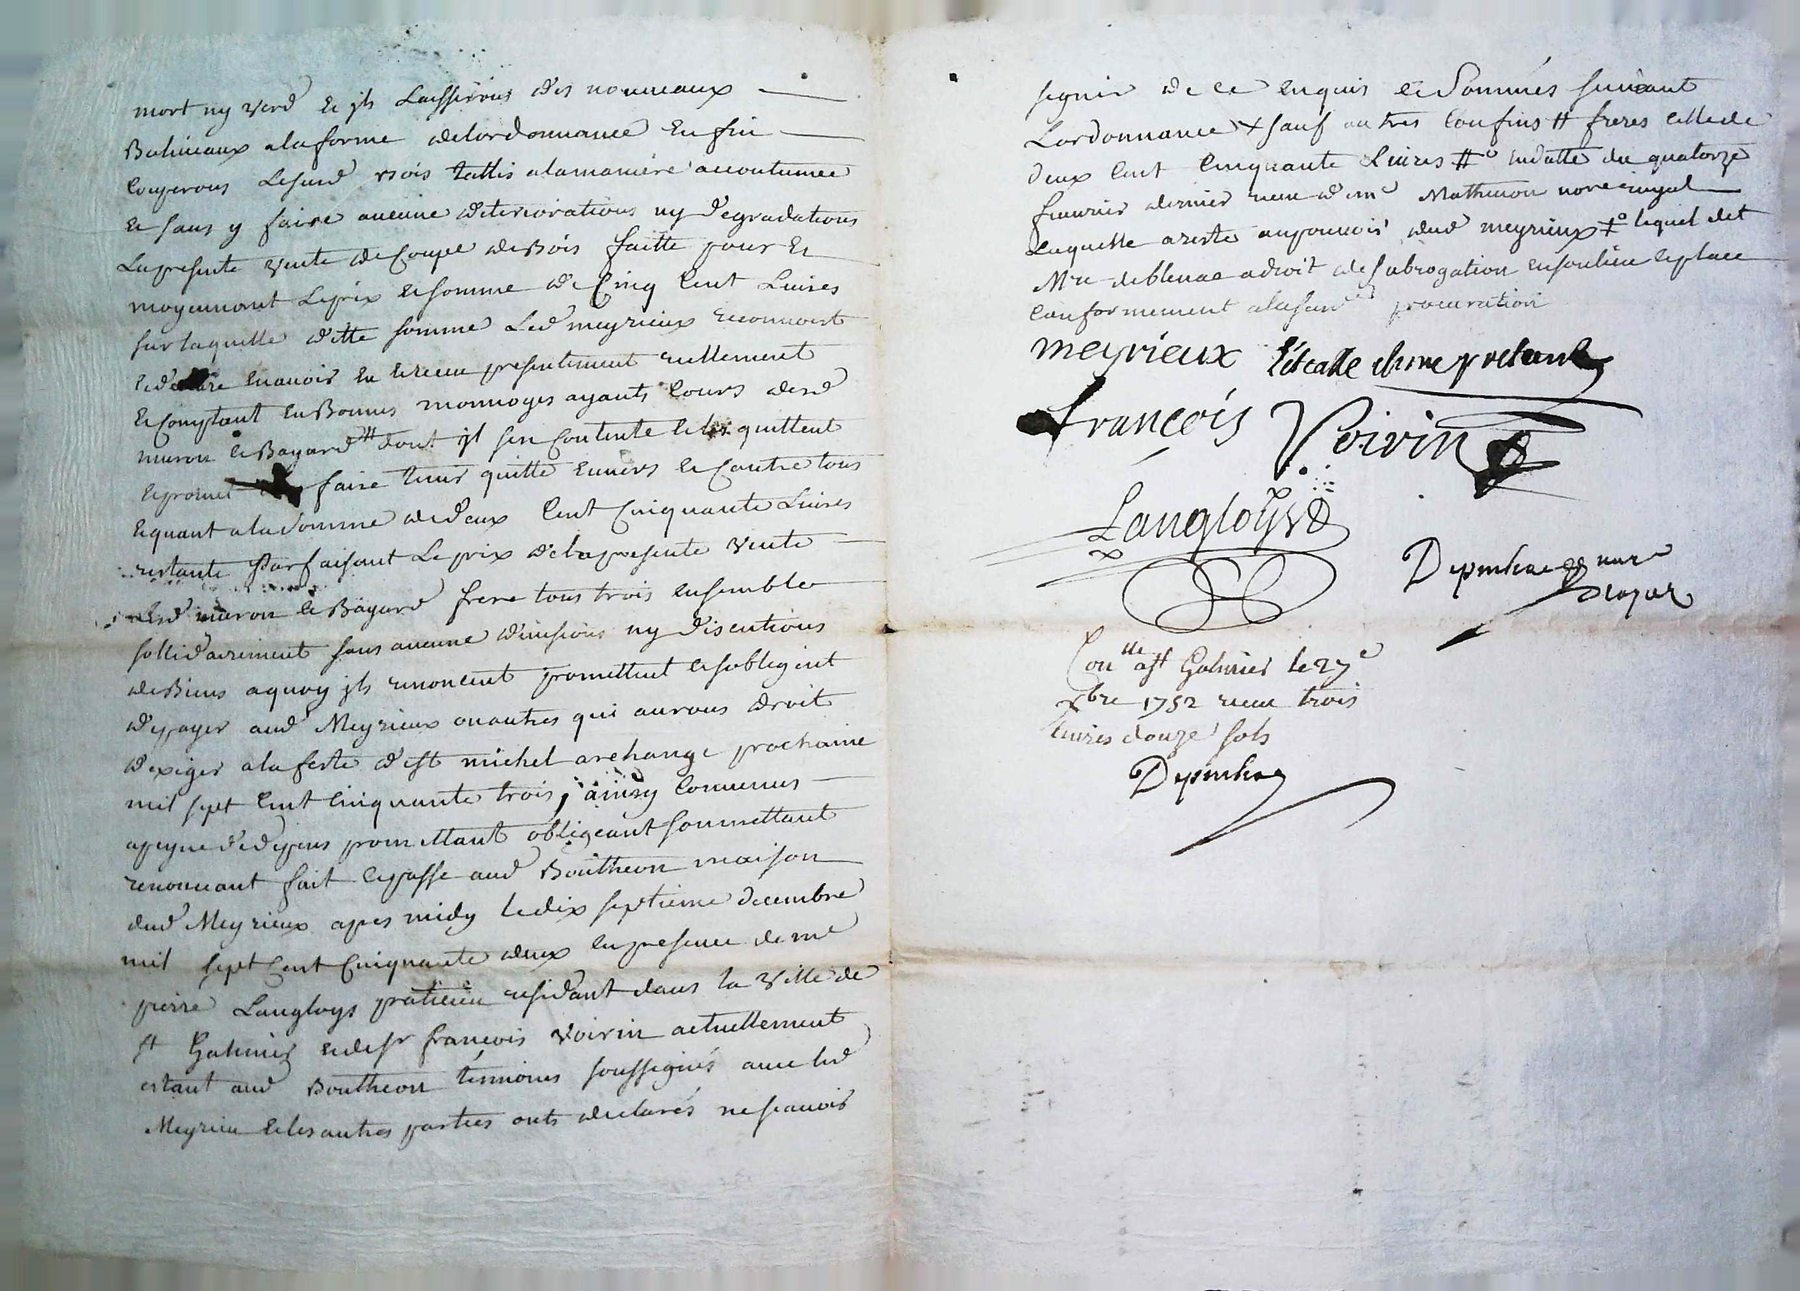 mort ny verd et jls Laisseront des nouveaux
Baliveaux alaforme delordonnance Enfin
Couperont Lesusd bois taillis alamaniere accoutumée
Et sans y faire aucune deteriorations ny degradations
Lapresente vente de Coupe de Bois faitte pour Et
moyennant Leprix Etsomme de Cinq Cent Livres
sur laquelle ditte somme Led meyrieux reconnoist
avoir Eu Etreceu presentement reellement
Et Comptant En Bonnes monnoyes ayants Cours desd
muron Et Bayard # dont jl sen Contente et les quittent
Et promet faire tenir quitte Envers Et Contre tous
Et quant ala somme de deux Cent Cinquante Livres
restante Parfaisant Le prix delapresente vente
Lesd muron Et Bayard frere tous trois Ensemble
sollidairement sans aucune divisions ny discutions
de Biens aquoy jls renoncent promettent et sobligent
de payer aud Meyrieux ou autres qui auront droit
dexiger ala feste de st michel archange prochaine
mil sept Cent Cinquante trois, ainsy Convenus
apeyne dedepens promettant obligeant soumettant
renonceant fait et passé aud Boutheon maison
dud Meyrieux apres midy le dix septieme decembre
mil sept Cent Cinquante deux En presence de me
pierre Langloys praticien residant dans la Ville de
st Galmier et de sr françois Voirin actuellement
estant aud Boutheon témoins soussignés avec led
Meyrieu Et les autres parties onts declarés ne scavoir
signer de ce Enquis et Sommés suivant
Lordonnance + sauf autres Confins # freres celle de
deux Cent Cinquante Livres #o Endatte du quatorze
fevrier dernier receu de me Mathevon nore royal
Laquelle a resté aupouvoir dud meyrieux +o lequel dit
Mre deblenac adroit de subrogation En son lieu et place
Conformement alasusd procuration
meyrieux
françois Voirin
Langloys
Depinhac nore
Royal
Conlle a st Galmier le 27e
xbre 1752 receu trois
Livres douze sols
Depinhac